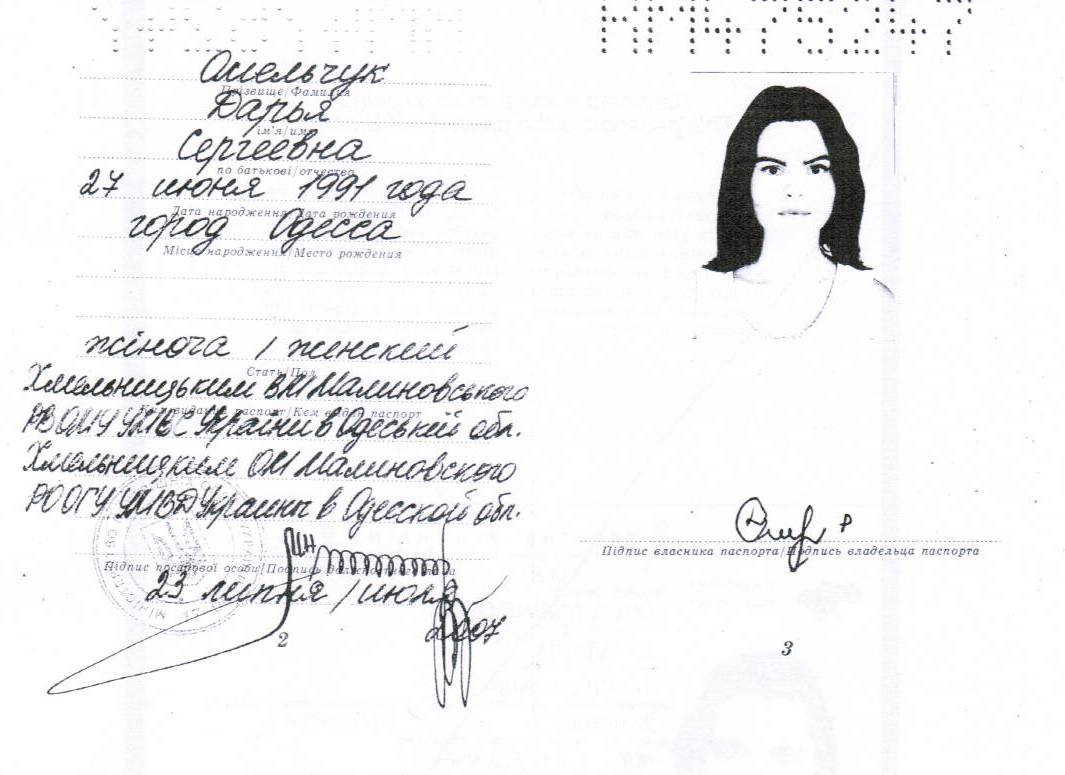 КМ475247
Омельчук
Прізвище/Фамилия
Дарья
ім'я/имя
Сергеевна
по батькові/отчество
27 июня 1991 года
Дата народження/Дата рождения
город Одесса
Місце народження/Место рождения
жіноча / женский
Стать/Пол
Хмельницьким ВМ Малиновського
Ким виданий паспорт/Кем выдан паспорт
РВ ОМУ УМВС України в Одеській обл.
Хмельницким ОМ Малиновского
РО ОГУ УМВД Украины в Одесской обл.
Підпис посадової особи/Подпись должностного лица
23 липня / июля
2007
2
Підпис власника паспорта/Подпись владельца паспорта
3